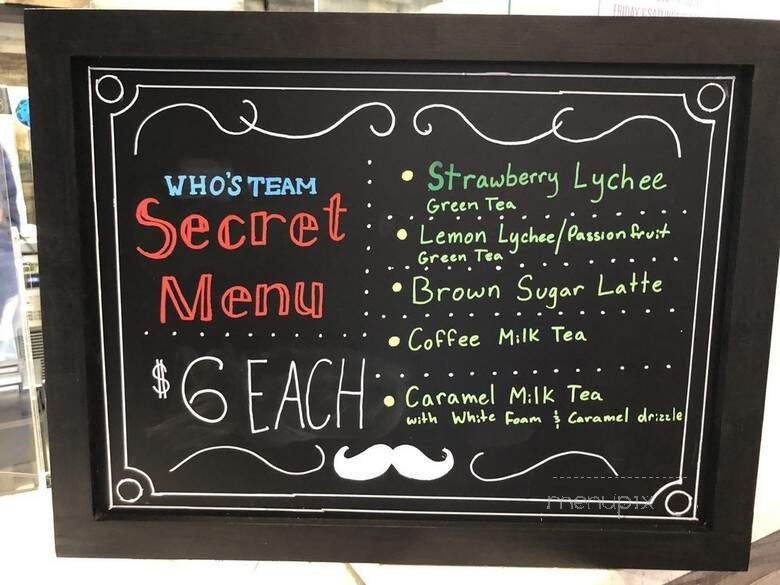 WHO'S TEAM
Secret
Menu
$6 EACH
• Strawberry Lychee
Green Tea
• Lemon Lychee/Passion fruit
Green Tea
• Brown Sugar Latte
• Coffee Milk Tea
• Caramel Milk Tea
with White Foam & Caramel drizzle
menupix